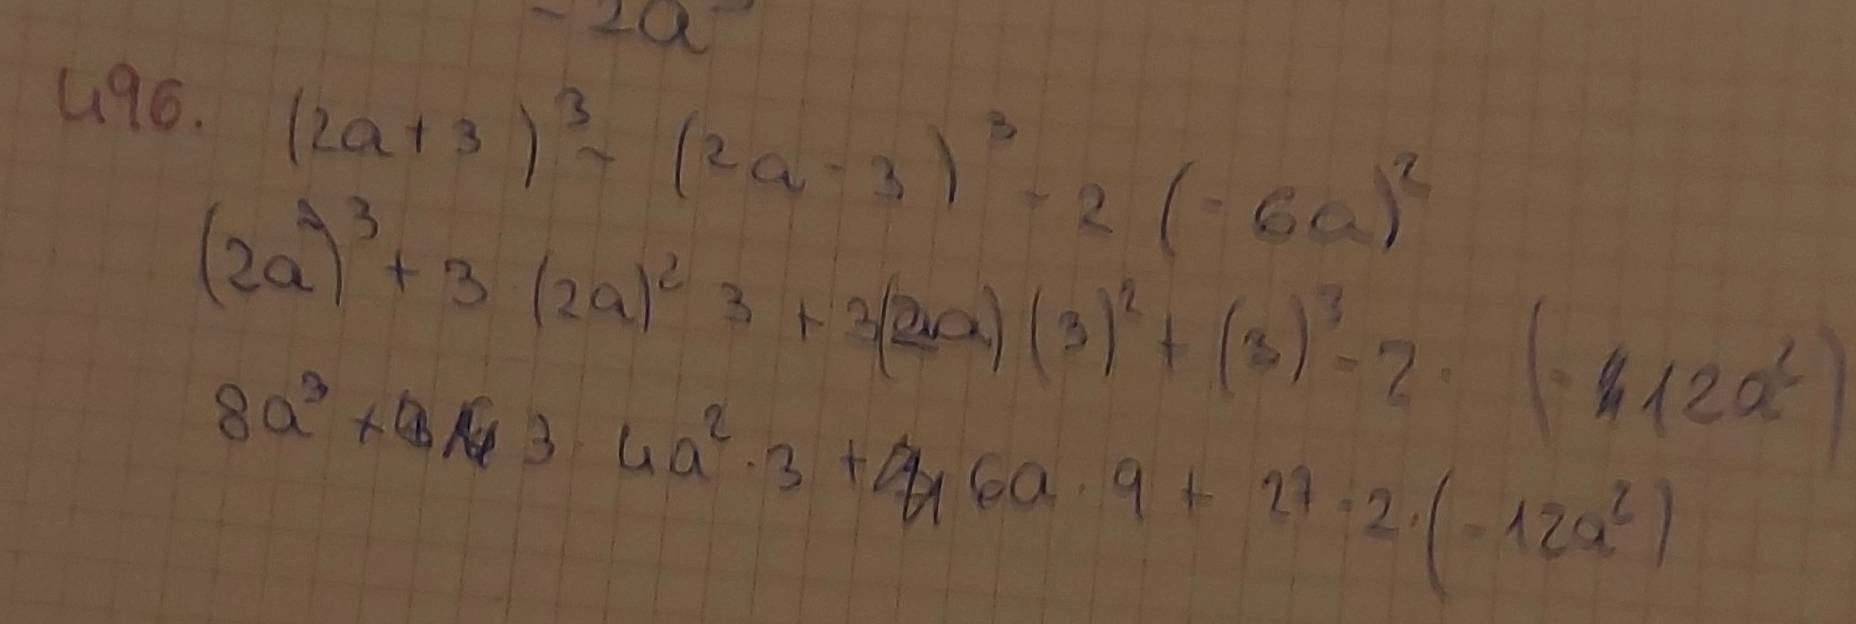 - 2a
496. (2a+3)³ - (2a-3)³ - 2(-6a)²
(2a)³ + 3 (2a)² 3 + 3(2a)(3)² + (3)³ - 2 · (-12a²)
8a³ + 3 · 4a² · 3 + 6a · 9 + 27 - 2 · (-12a²)